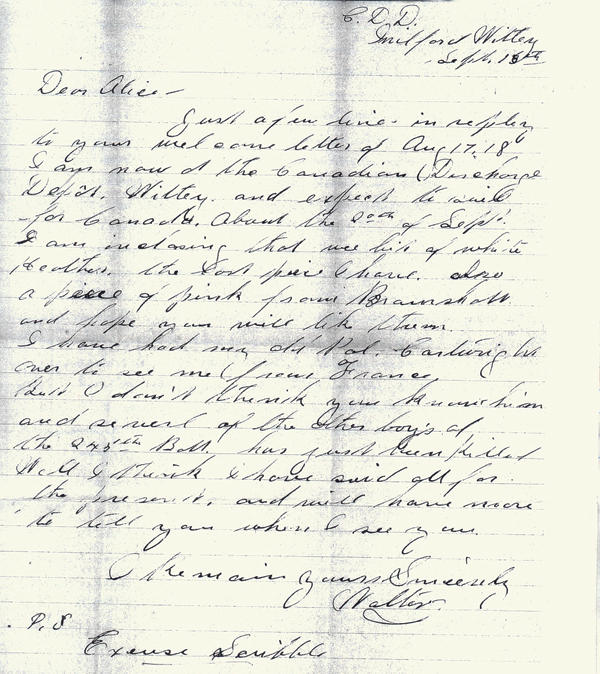 C. D. D.
Milford Witley
Sept. 15th
Dear Alice —
Just a few lines in reply
to your welcome letter of Aug 17, 18
I am now at the Canadian Discharge
Depôt. Witley. and expect to sail
for Canada. About the 20th of Sept.
I am inclosing that wee bit of white
Heather. the last piece I have. Also
a piece of pink from Bramshott.
and hope you will like them.
I have had my old Pal. Cartwright
over to see me from France
But I don't think you know him
and severl of the other boys of
the 245th Batt. has just been killed
Well I think I have said all for
the present, and will have more
to tell you when I see you.
I Remain Yours Sincerely
Walter.
P. S
Excuse Scribble